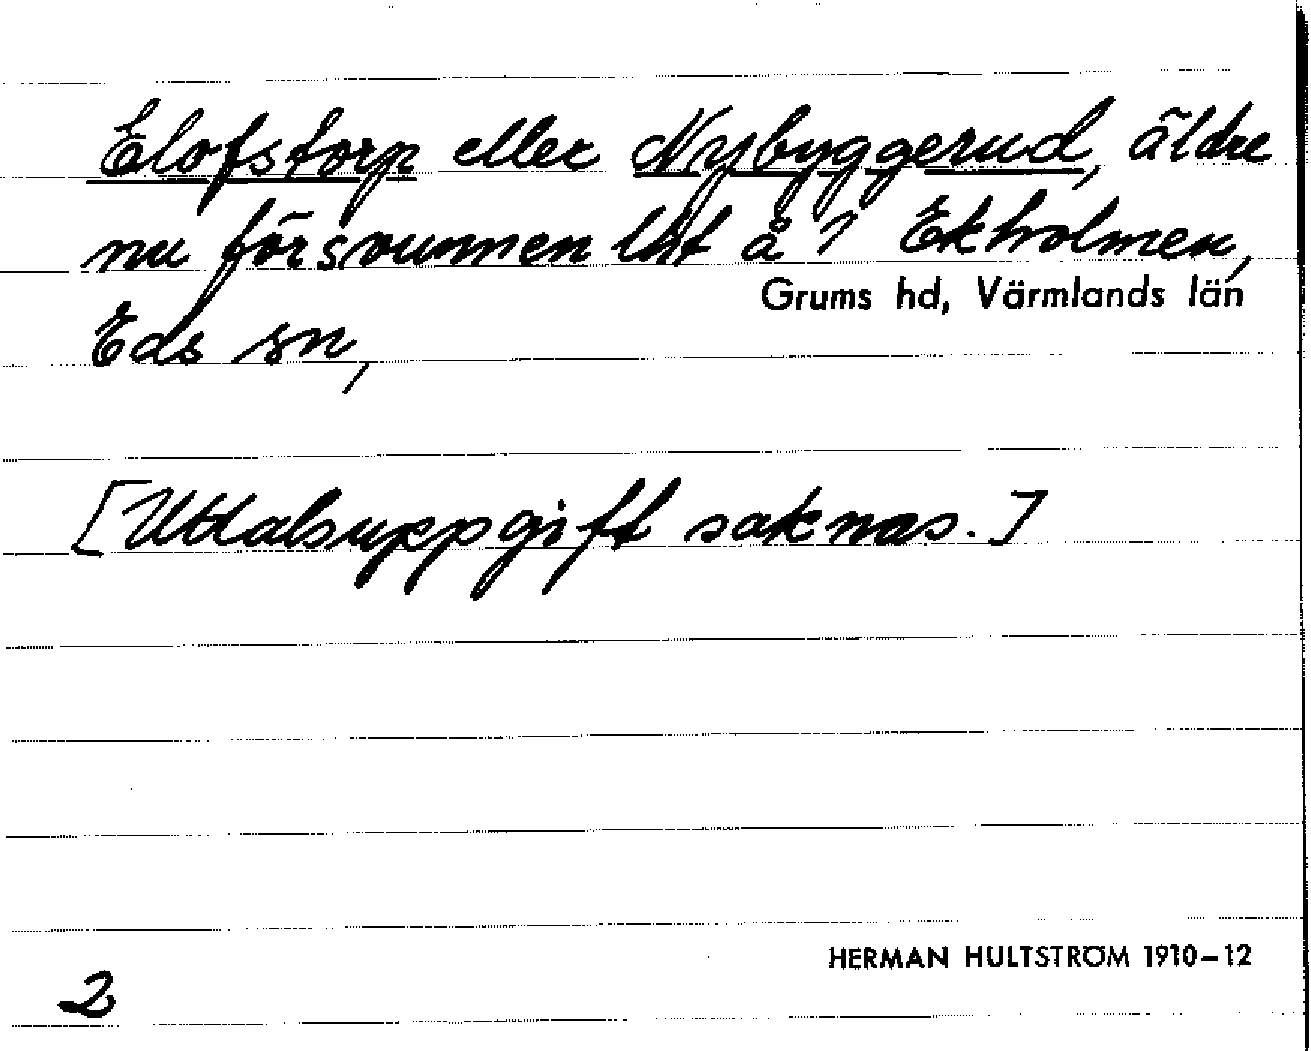 Elofstorp eller Nybyggerud, äldre
nu försvunnen lht å ? Ekholmen,
Grums hd, Värmlands län
Eds sn,
[Uttalsuppgift saknas.]
HERMAN HULTSTRÖM 1910–12
2